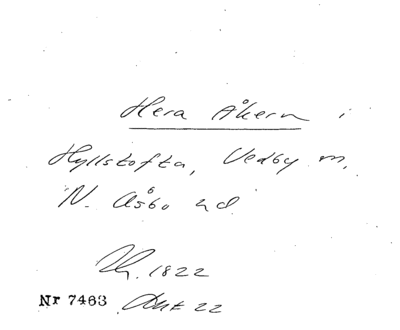 Hera Åkern i
Hyllstofta, Vedby sn,
N. Åsbo hd
1822
Nr 7463 Akt 22